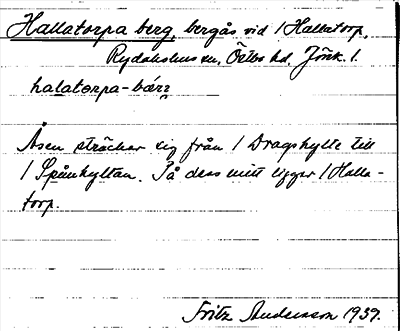 Hallatorpa berg, bergås vid 1 Hallatorp,
Rydaholms sn, Östbo hd, Jönk. l.
halatorpa-bárʒ
Åsen sträcker sig från 1 Dragshylte till
1 Spånhyltan. På dess mitt ligger 1 Halla-
torp.
Fritz Andersson 1939.